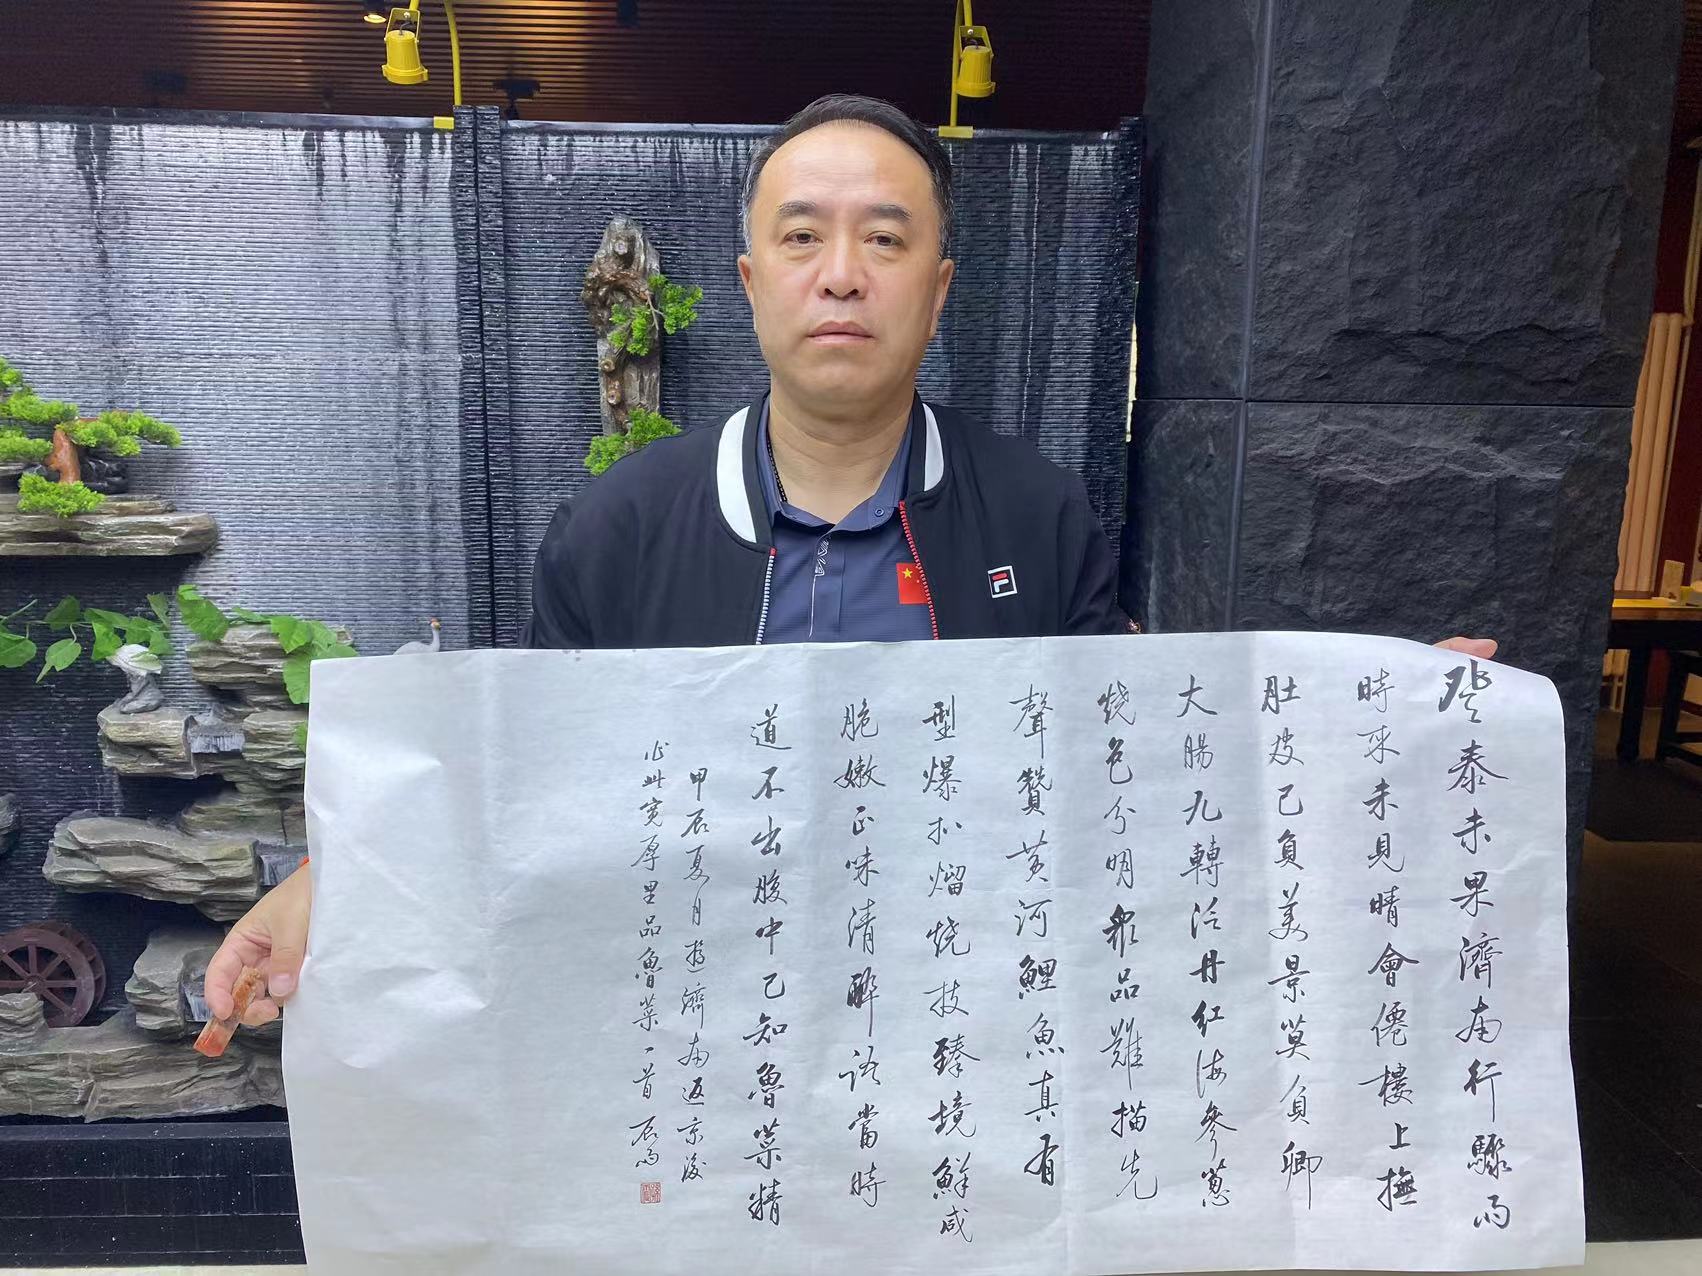 登泰未果濟南行驟雨
時来未見晴會僊樓上撫
肚皮已負美景莫負卿
大腸九轉泛丹红海參蔥
烧色分明眾品難描先
聲贊黄河鯉魚真有
型爆扒熘烧技臻境鮮咸
脆嫩正味清醉语當時
道不出腹中已知魯菜精
甲辰夏月遊濟南返京後
作此寛厚里品魯菜一首 辰雨